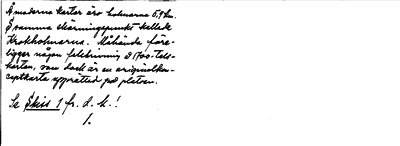 Å moderna kartor äro holmarna
I samma skärningspunkt kallade
Krokholmarna. Måhända före-
ligger någon felskrivning å 1700-tals-
kartan, som dock är en originalkon-
ceptkarta upprättad på platsen.
Se Skiss 1 fr. d. k.!
1.